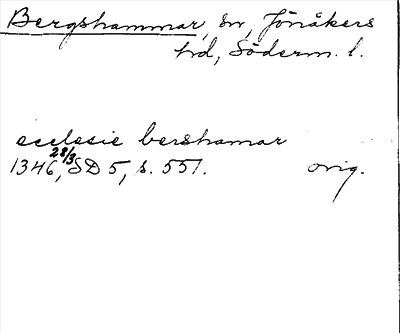 Bergshammar, sn, Jönåkers
hd, Söderm. l.
ecclesie bershamar
1346 28/3, SD 5, s. 551. orig.